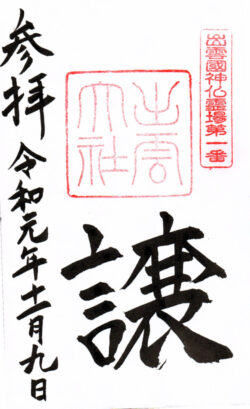 出雲國神仏霊場第一番
出雲
大社
譲
参拝 令和元年十一月九日